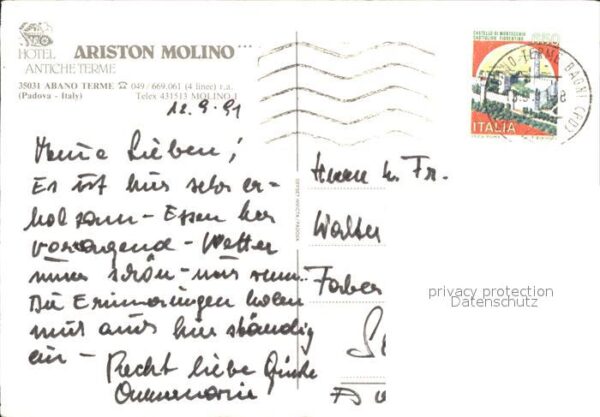 HOTEL
ANTICHE TERME
ARISTON MOLINO ***
35031 ABANO TERME ☎ 049/669.061 (4 linee) r.a.
(Padova - Italy) Telex 431513 MOLINO-I
12.9.91
Meine Lieben!
Es ist hier sehr er-
holsam - Essen her
vorragend - Wetter
immer schön - nur wenn
Die Erinnerungen holen
mich aus hier ständig
ein -
Recht liebe Grüße
Annemarie
CASTELLO DI MONTECCHIO
CASTIGLION FIORENTINO
650
ITALIA
TERME BAGNI (PD)
Herrn u. Fr.
Walter
Faber
privacy protection
Datenschutz